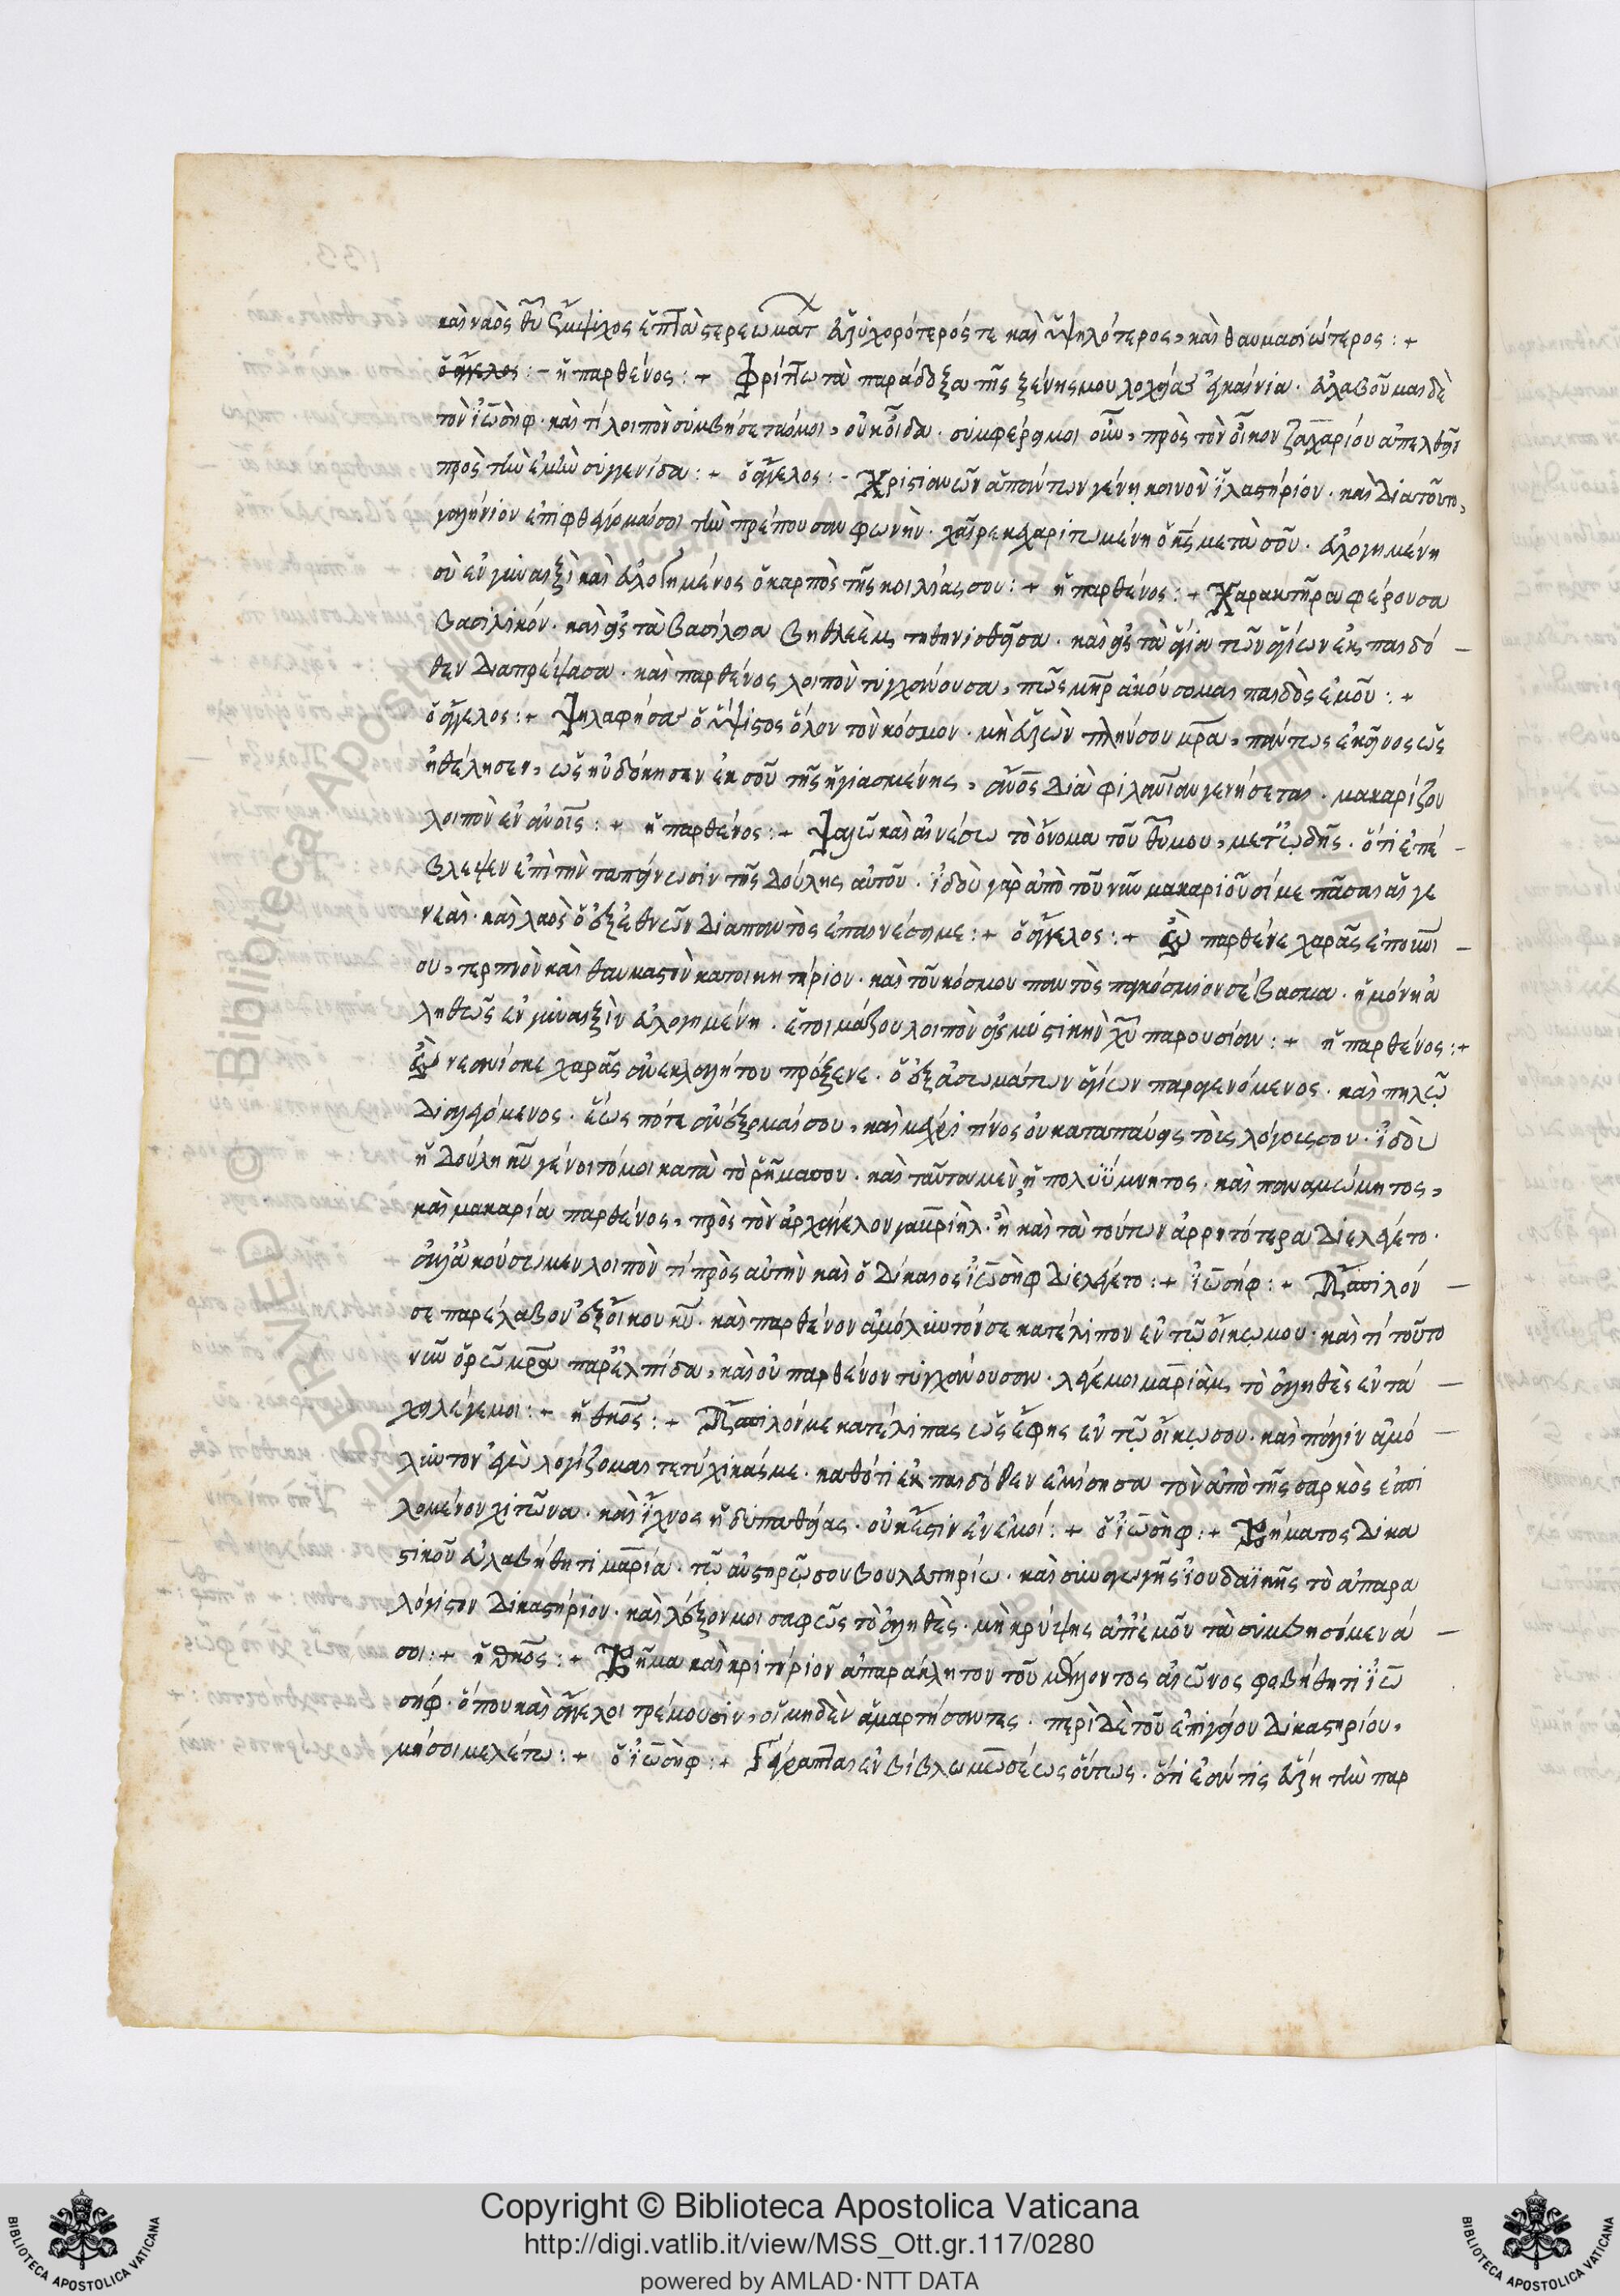 καὶ ναὸς θῦ ἔμψυχος ἑπτὰ στερεωμάτ εὐρυχορότερός τε καὶ ὑψηλότερος, καὶ θαυμασιώτερος :+
ὁ ἄγγελος :- ἡ παρθένος :+ Φρίττω τὰ παράδοξα τῆς ξένης μου λοχείας ἐγκαίνια. εὐλαβοῦμαι δὲ
τὸν ἰωσὴφ. καὶ τί λοιπὸν συμβήσεταί μοι, οὐκ οἶδα. συμφέρει μοι οὖν, πρὸς τὸν οἶκον ζαχαρίου ἀπελθεῖν
πρὸς τὴν ἐμὴν συγγενίδα :+ ὁ ἄγγελος :- Χριστιανῶν ἁπάντων γένῃ κοινὸν ἱλαστήριον. καὶ διατοῦτο,
γαλήνιον ἐπιφθέγγομαί σοι τὴν πρέπουσαν φωνὴν. χαῖρε κεχαριτωμένη ὁ κς μετὰ σοῦ. εὐλογημένη
σὺ ἐν γυναιξὶ καὶ εὐλογημένος ὁ καρπὸς τῆς κοιλίας σου :+ ἡ παρθένος :+ Χαρακτῆρα φέρουσα
βασιλικόν. καὶ εἰς τὰ βασίλεια βηθλεὲμ τιθηνισθεῖσα. καὶ εἰς τὰ ἅγια τῶν ἁγίων ἐκ παιδό
θεν διαπρέψασα. καὶ παρθένος λοιπὸν τυγχάνουσα, πῶς μηρ ἀκούσομαι παιδὸς ἐμοῦ :+
ὁ ἄγγελος :+ Ψηλαφήσας ὁ ὕψιστος ὅλον τὸν κόσμον. μὴ εὑρὼν πλήν σου μρα, πάντως ἐκεῖνος ὡς
ἠθέλησεν, ὡς ηὐδόκησεν ἐκ σοῦ τῆς ἡγιασμένης, ανος διὰ φιλανίαν γενήσεται. μακαρίζου
λοιπὸν ἐν ανοις :+ ἡ παρθένος :+ Ψαλῶ καὶ αἰνέσω τὸ ὄνομα τοῦ θυ μου, μετ ᾠδῆς. ὅτι ἐπέ
βλεψεν ἐπὶ τὴν ταπείνωσιν τῆς δούλης αὐτοῦ. ἰδοὺ γὰρ ἀπὸ τοῦ νῦν μακαριοῦσί με πᾶσαι αἱ γε
νεαὶ. καὶ λαὸς ὁ ἐξ ἐθνῶν διαπαντὸς ἐπαινέσει με :+ ὁ ἄγγελος :+ Ὦ παρθένε χαρᾶς ἐπουνι
ου, τερπνὸν καὶ θαυμαστὸν κατοικητήριον. καὶ τοῦ κόσμου παντὸς παγκόσμιον σέβασμα. ἡ μόνη ἀ
ληθῶς ἐν γυναιξὶν εὐλογημένη. ἑτοιμάζου λοιπὸν εἰς μυστικὴν χυ παρουσίαν :+ ἡ παρθένος :+
Ὦ νεανίσκε χαρᾶς ἀνεκλαλήτου πρόξενε. ὁ ἐξ ἀσωμάτων ἁγίων παραγενόμενος. καὶ πηλῷ
διαλεγόμενος. ἕως πότε ἀνέξομαί σου, καὶ μέχρι τίνος οὐ καταπαύεις τοῖς λόγοις σου. ἰδοὺ
ἡ δούλη κυ γένοιτό μοι κατὰ τὸ ῥῆμα σου. καὶ ταῦτα μὲν, ἡ πολυΰμνητος. καὶ παναμώμητος,
καὶ μακαρία παρθένος, πρὸς τὸν ἀρχάγγελον γαυριὴλ. ἢ καὶ τὰ τούτων ἀρρητότερα διελέγετο.
ἀλλ ἀκούσωμεν λοιπὸν τί πρὸς αὐτὴν καὶ ὁ δίκαιος ἰωσὴφ διελέγετο :+ ἰωσήφ :+ Ἄσπιλόν
σε παρέλαβον ἐξ οἴκου κυ. καὶ παρθένον ἀμόλυντόν σε κατέλιπον ἐν τῷ οἴκῳ μου. καὶ τί τοῦτο
νῦν ὁρῶ μρα παρ ἐλπίδα, καὶ οὐ παρθένον τυγχάνουσαν. λέγε μοι μαριὰμ, τὸ ἀληθὲς ἐν τά
χει λέγε μοι :+ ἡ θκος :+ Ἄσπιλόν με κατέλιπας ὡς ἔφης ἐν τῷ οἴκῳ σου. καὶ πάλιν ἀμό
λυντον ἐγὼ λογίζομαι τετύχικάς με. καθότι ἐκ παιδόθεν ἐμίσησα τὸν ἀπὸ τῆς σαρκὸς ἐσπι
λομένον χιτῶνα. καὶ ἴχνος ἡδυπαθείας. οὐκ ἔστιν ἐν ἐμοί :+ ὁ ἰωσὴφ :+ Βήματος δικα
στικοῦ εὐλαβήθητι μαρία. τῷ αὐστηρῷ σου βουλευτηρίω. καὶ συναγωγῆς ἰουδαϊκῆς τὸ ἀπαρα
λόγιστον δικαστήριον. καὶ λέξον μοι σαφῶς τὸ ἀληθὲς. μὴ κρύψης ἀπ ἐμοῦ τὰ συμβησόμενά
σοι :+ ἡ θκος :+ Βῆμα καὶ κριτήριον ἀπαράκλητον τοῦ μέλλοντος αἰῶνος φοβήθητι ἰω
σήφ. ὅπου καὶ ἄγγελοι τρέμουσιν, οἱ μηδὲν ἁμαρτήσαντες. περὶ δὲ τοῦ ἐπιγείου δικαστηρίου,
μή σοι μελέτω :+ ὁ ἰωσὴφ :+ Γέγραπται ἐν βίβλω μωσέως οὕτως. ὅτι ἐάν τις εὕρη τὴν παρ
Copyright © Biblioteca Apostolica Vaticana
http://digi.vatlib.it/view/MSS_Ott.gr.117/0280
powered by AMLAD·NTT DATA